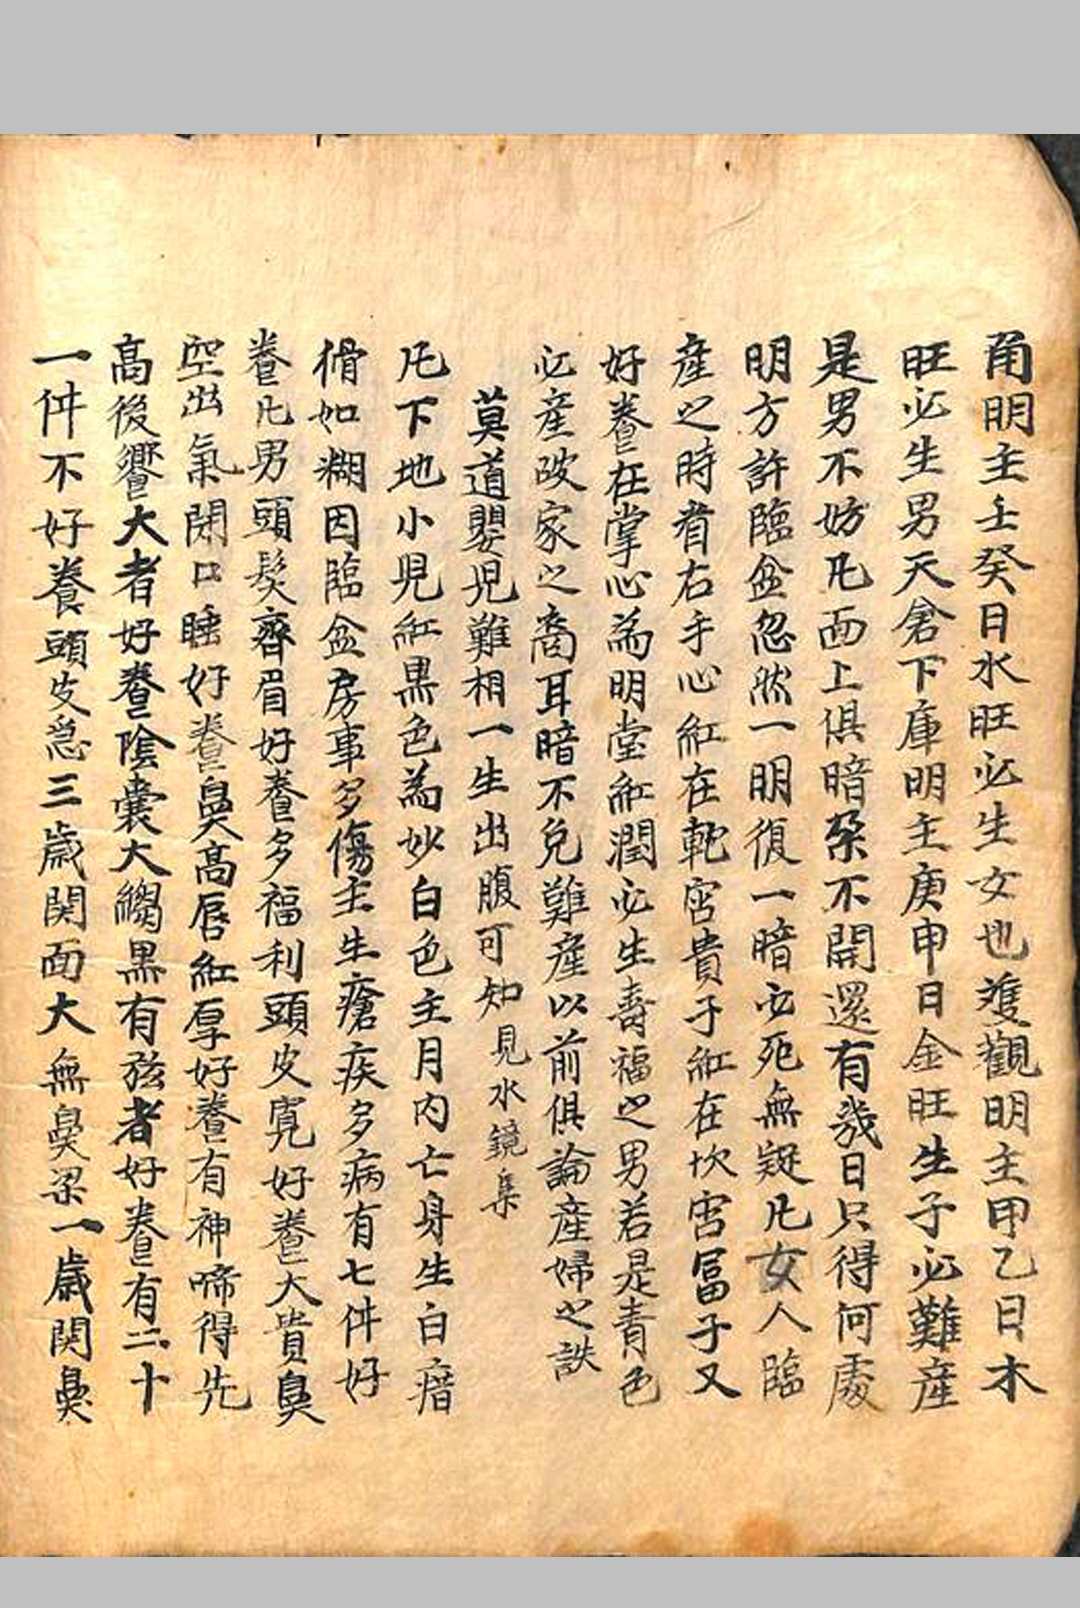 甬明主壬癸日水旺必生女也進觀明主甲乙日木
旺必生男天倉下庫明主庚申日金旺生子必難產
是男不妨凡面上俱暗朶不開還有幾日只得何處
明方許臨盆忽然一明復一暗必死無疑凡女人臨
產之時看右手心紅在乾宮貴子紅在坎宮冨子又
好養在掌心為明堂紅潤必生壽福之男若是青色
必產破家之裔耳暗不免難產以前俱論產婦之訣
莫道嬰児難相一生出腹可知見水鏡集
凡下地小児紅黒色為妙白色主月内亡身生白瘖
滑如糊因臨盆房事多傷主生瘡疾多病有七件好
養凡男頭髮齊眉好養多福利頭皮寬好養大貴臭
空出氣閉口睡好養臭高唇紅厚好養有神啼得先
高後響大者好養陰囊大縐黒有弦者好養有二十
一件不好養頭皮急三歲関面大無臭梁一歲関臭